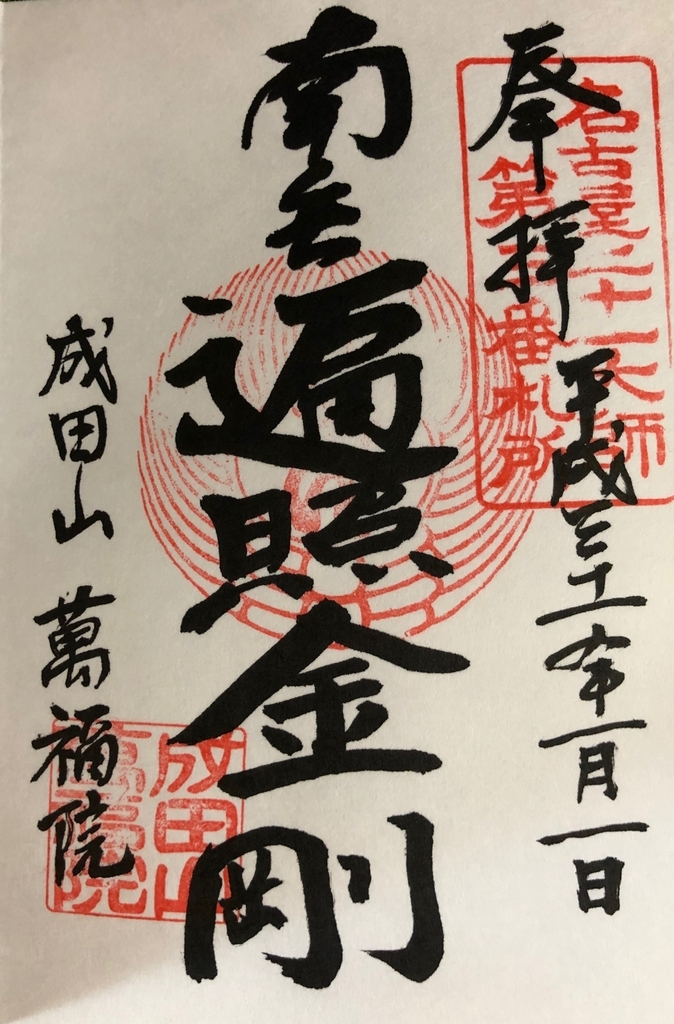 奉拝
平成三十一年一月一日
名古屋二十一大師
第 番札所
南無遍照金剛
成田山 萬福院
成田山
萬福院